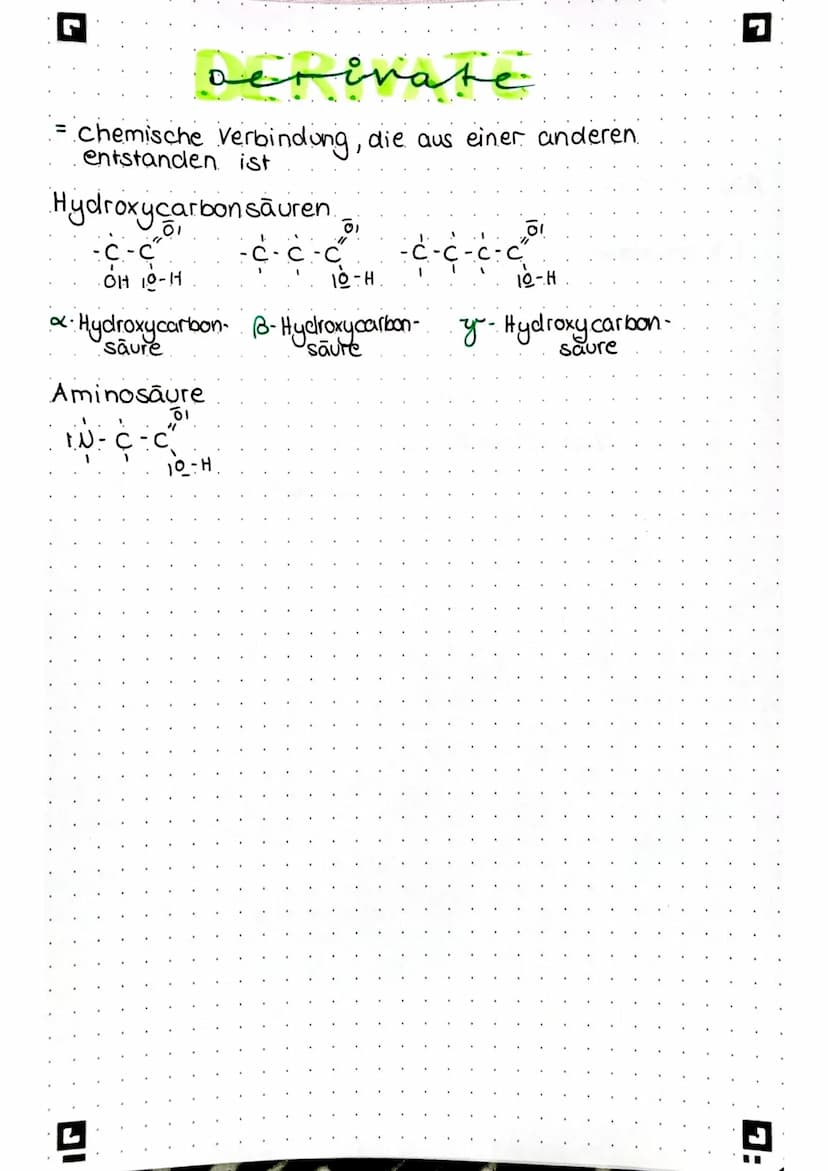 DERIVATE
Derivate
= chemische Verbindung, die aus einer anderen
entstanden ist
Hydroxycarbonsäuren
-C-C=O| -C-C-C=O| -C-C-C-C=O|
OH |O-H |O-H |O-H
α-Hydroxycarbon- β-Hydroxycarbon- γ-Hydroxycarbon-
säure säure säure
Aminosäure
|N-C-C=O|
|O-H